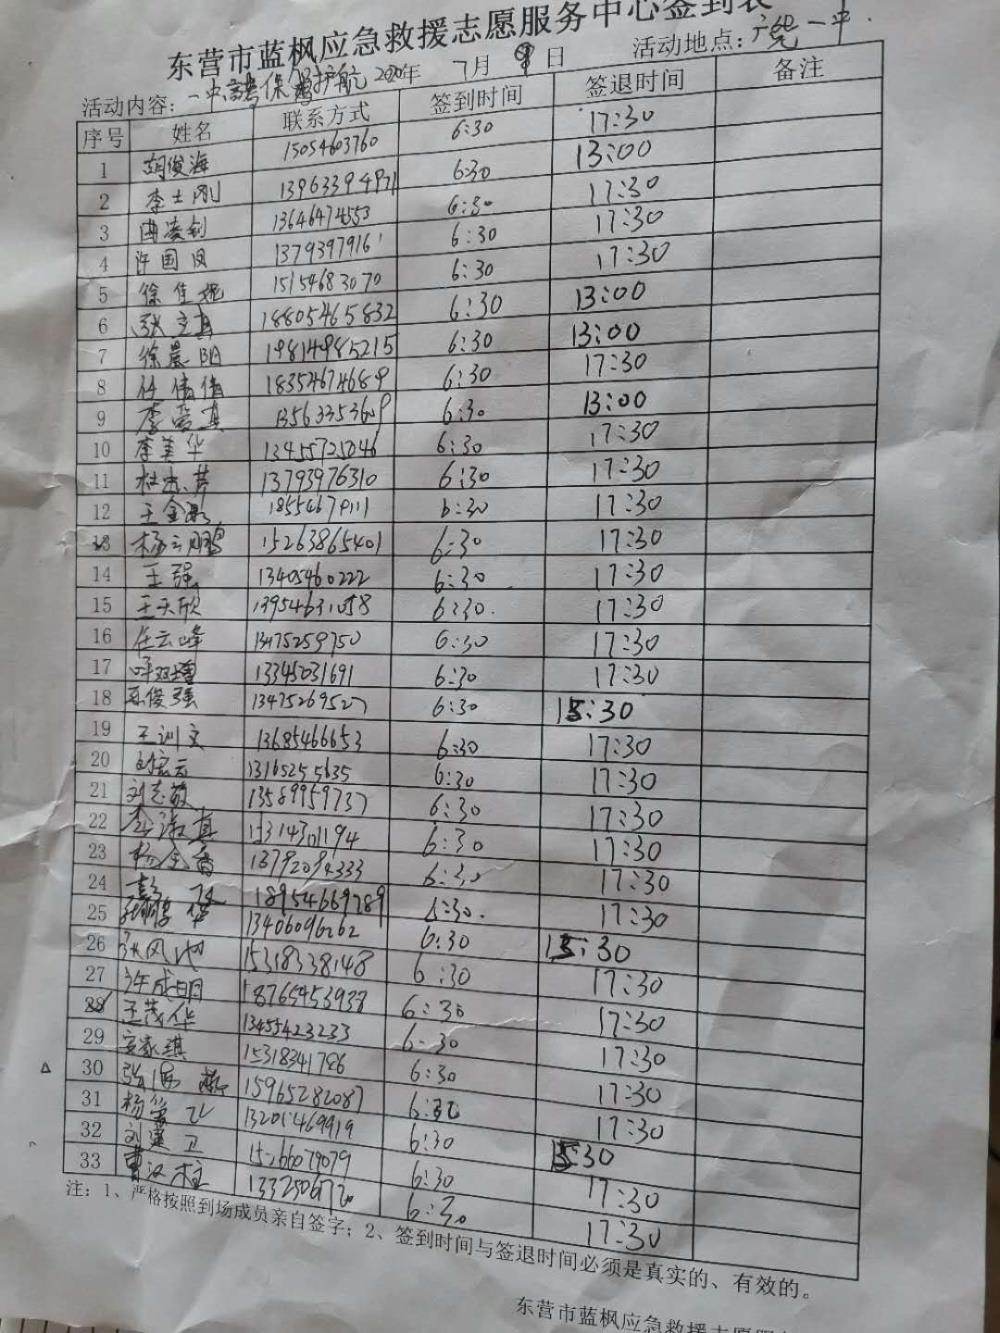 东营市蓝枫应急救援志愿服务中心签到表
活动内容:一中高考保驾护航 2020年 7月 9日 活动地点:广饶一中
序号 姓名 联系方式 签到时间 签退时间 备注
1 胡俊海 15054603760 6:30 17:30
2 李士刚 13963394971 6:30 13:00
3 曲凌剑 13646474553 6:30 17:30
4 许国凤 1379397916 6:30 17:30
5 徐佳妮 15154683070 6:30 17:30
6 张立真 18805465832 6:30 13:00
7 徐晨阳 19814985215 6:30 13:00
8 任倩倩 18354674689 6:30 17:30
9 李 其 13563353609 6:30 13:00
10 李美华 13455725046 6:30 17:30
11 杜 芳 13793976310 6:30 17:30
12 王金 18554679111 6:30 17:30
13 杨云鹏 15263865401 6:30 17:30
14 王强 13405460222 6:30 17:30
15 王天欣 13954631058 6:30 17:30
16 任云峰 13475259750 6:30 17:30
17 呼双 13345031691 6:30 17:30
18 俊强 13475269527 6:30 15:30
19 王训文 13685466653 6:30 17:30
20 刘宏云 13165255635 6:30 17:30
21 刘志敏 13589959737 6:30 17:30
22 李淑真 15314301194 6:30 17:30
23 杨金香 13792094333 6:30 17:30
24 18954669789 6:30 17:30
25 13406096262 6:30 15:30
26 张风池 15318338148 6:30 17:30
27 许成明 18765453938 6:30 17:30
28 王茂华 13455423233 6:30 17:30
29 家琪 15318341786 6:30 17:30
30 张 15965282087 6:30 17:30
31 杨 飞 13201469919 6:30 15:30
32 刘建卫 15266029079 6:30 17:30
33 曹汉柱 6:30 17:30
注:1、严格按照到场成员亲自签字;2、签到时间与签退时间必须是真实的、有效的。
东营市蓝枫应急救援志愿服